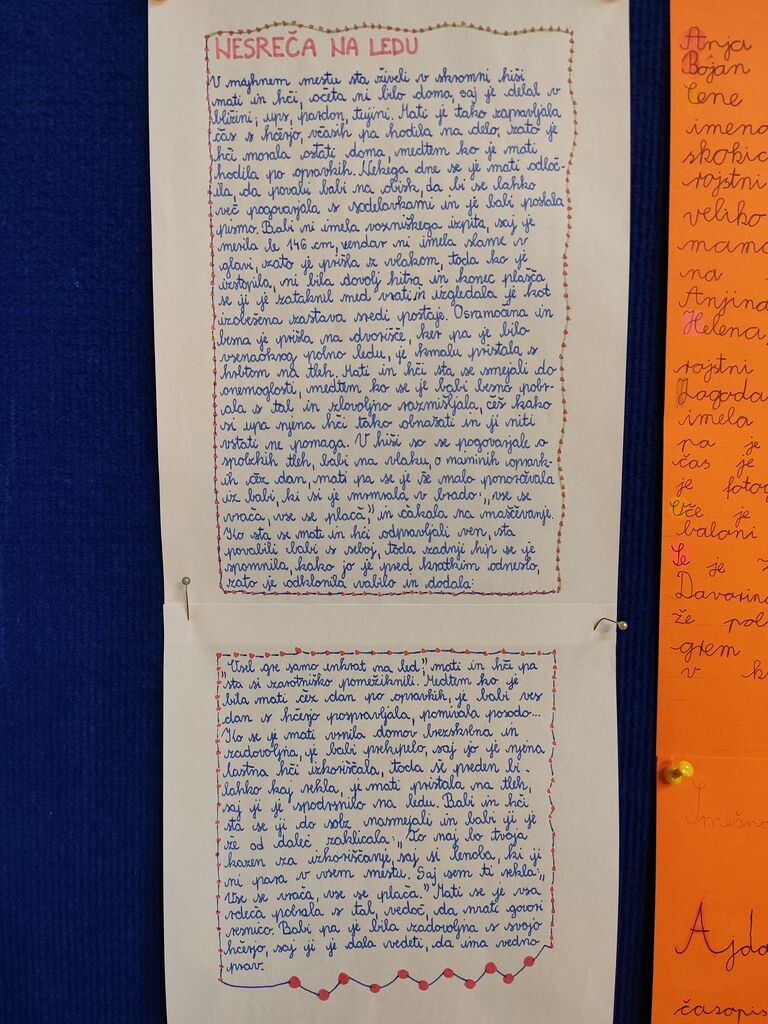 NESREČA NA LEDU
V majhnem mestu sta živeli v skromni hiši
mati in hči, očeta ni bilo doma, saj je delal v
bližini; ups, pardon, tujini. Mati je tako zapravljala
čas s hčerjo, včasih pa hodila na delo, zato je
hči morala ostati doma, medtem ko je mati
hodila po opravkih. Nekega dne se je mati odloč-
ila, da povabi babi na obisk, da bi se lahko
več pogovarjala s sodelavkami in je babi poslala
pismo. Babi ni imela vozniškega izpita, saj je
merila le 146 cm, vendar ni imela slame v
glavi, zato je prišla z vlakom, toda ko je
izstopila, ni bila dovolj hitra in konec plašča
se ji je zataknil med vrati in izgledala je kot
izobešena zastava sredi postaje. Osramočena in
besna je prišla na dvorišče, ker pa je bilo
vsenaokrog polno ledu, je kmalu pristala s
hrbtom na tleh. Mati in hči sta se smejali do
onemoglosti, medtem ko se je babi besno pobir-
ala s tal in zlovoljno razmišljala, češ kako
si upa njena hči tako obnašati in ji niti
vstati ne pomaga. V hiši so se pogovarjale o
spolzkih tleh, babi na vlaku, o maminih opravk-
ih čez dan, mati pa se je še malo ponorčevala
iz babi, ki si je mrmrala v brado: „vse se
vrača, vse se plača," in čakala na maščevanje.
Ko sta se mati in hči odpravljali ven, sta
povabili babi s seboj, toda zadnji hip se je
spomnila, kako jo je pred kratkim odneslo,
zato je odklonila vabilo in dodala:
„Osel gre samo enkrat na led;" mati in hči pa
sta si zarotniško pomežiknili. Medtem ko je
bila mati čez dan po opravkih, je babi ves
dan s hčerjo pospravljala, pomivala posodo...
Ko se je mati vrnila domov brezskrbna in
zadovoljna, je babi prekipelo, saj jo je njena
lastna hči izkoriščala, toda še preden bi
lahko kaj rekla, je mati pristala na tleh,
saj ji je spodrsnilo na ledu. Babi in hči
sta se ji do solz nasmejali in babi ji je
že od daleč zaklicala: „To naj bo tvoja
kazen za izkoriščanje, saj si lenoba, ki ji
ni para v vsem mestu. Saj sem ti rekla:„
Vse se vrača, vse se plača." Mati se je vsa
rdeča pobrala s tal, vedoč, da mati govori
resnico. Babi pa je bila zadovoljna s svojo
hčerjo, saj ji je dala vedeti, da ima vedno
prav.
Anja
Bojan
Cene
imena
skokic
rojstni
veliko
mama
na
Anjina
Helena,
rojstni
Jagoda
imela
pa je
čas je
je fotog
Uče je
baloni
Še je
Davorin
že pol
grem
v k
Smešno
Ajda
časopis